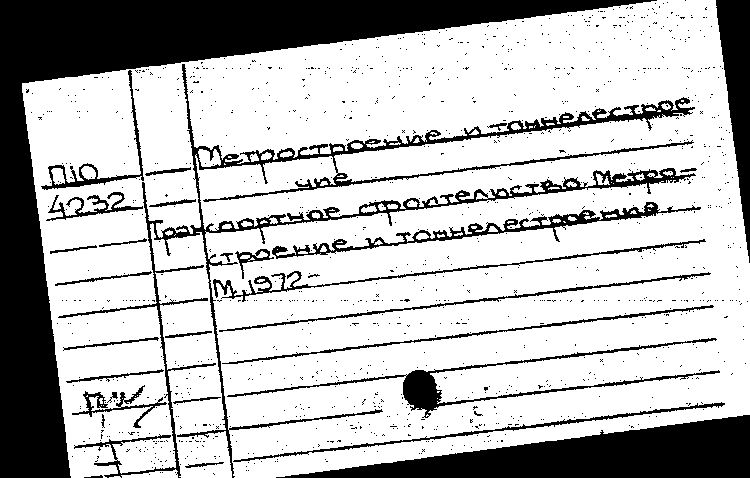 Метростроение и тоннелестрое
ПіО
ние
4232
Транспортное строительство. Метро=
строение и тоннелестроение.
М., 1972-